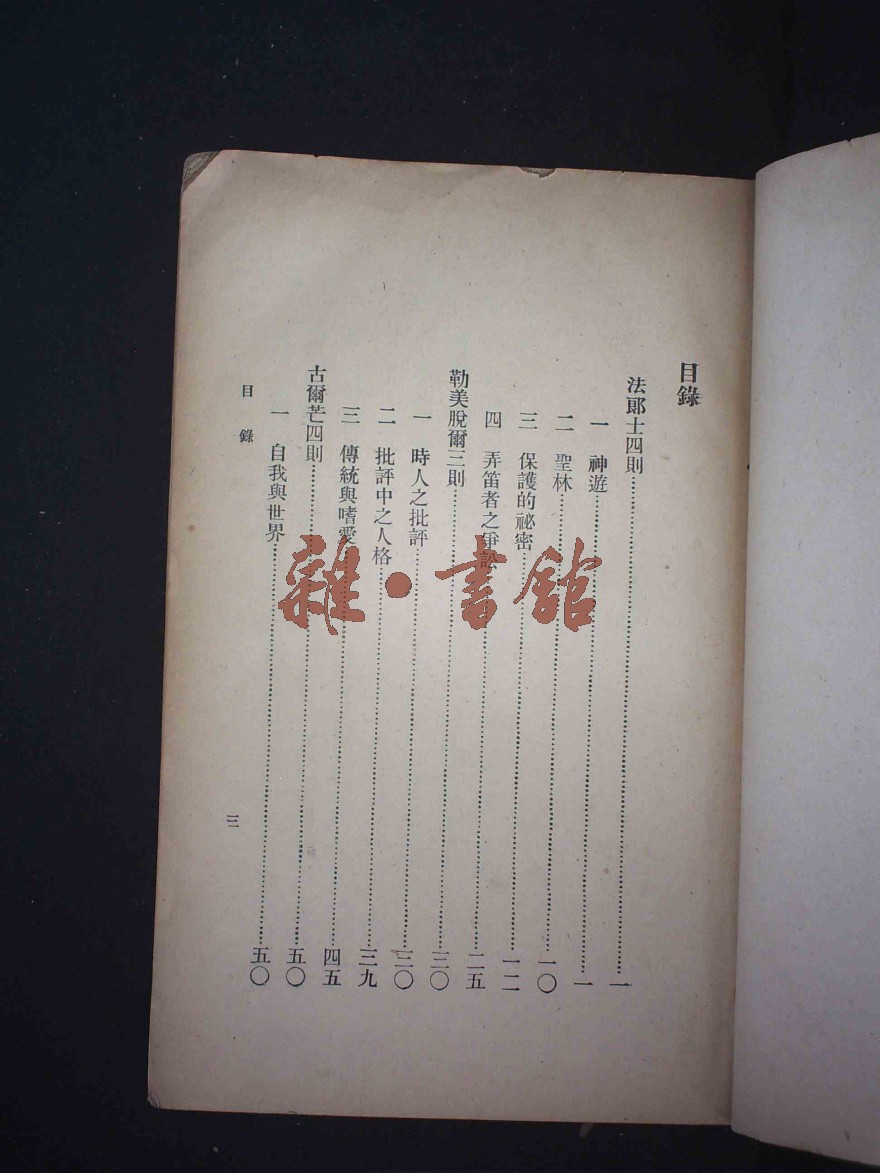 目錄
法郎士四則⋯⋯一
一 神遊⋯⋯一
二 聖林⋯⋯一〇
三 保護的祕密⋯⋯一二
四 弄笛者之爭訟⋯⋯二五
勒美脫爾三則⋯⋯三〇
一 時人之批評⋯⋯三〇
二 批評中之人格⋯⋯三九
三 傳統與嗜愛⋯⋯四五
古爾芒四則⋯⋯五〇
一 自我與世界⋯⋯五〇
目錄
雜·書館